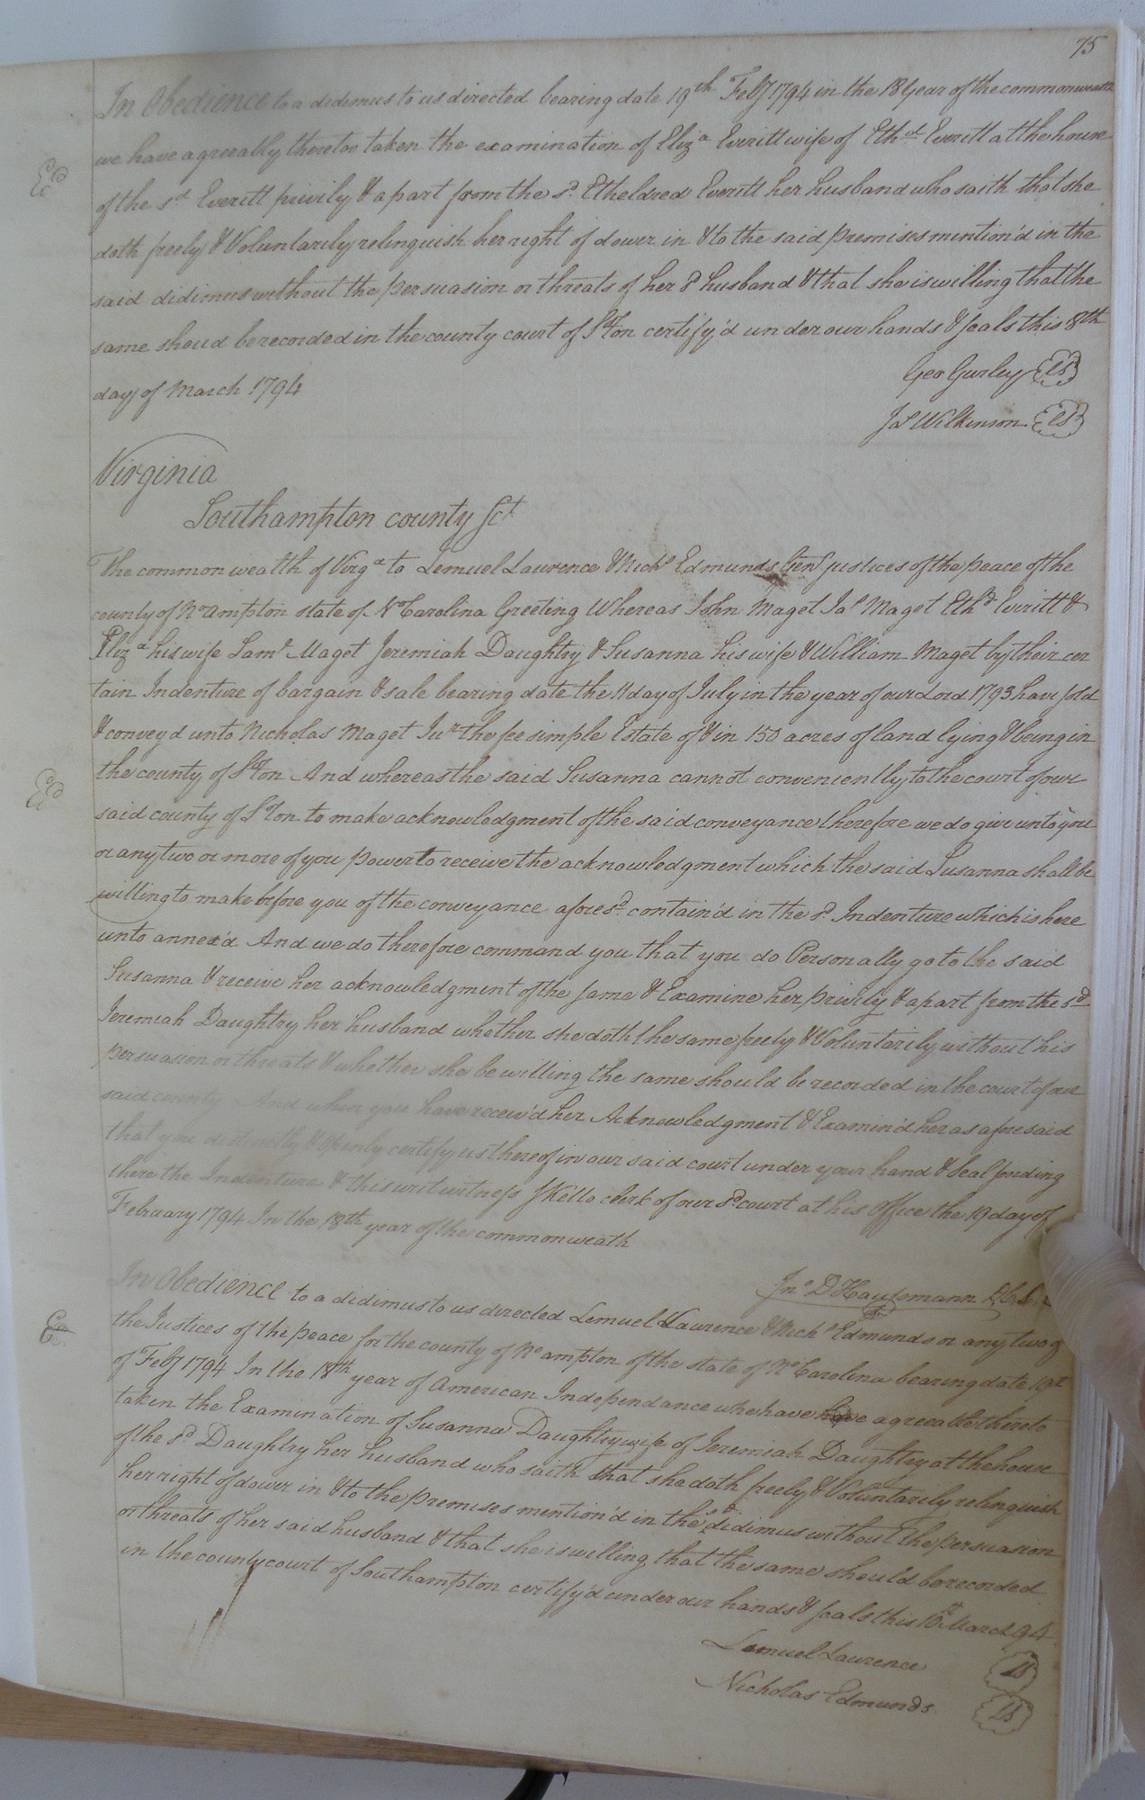 75
In Obedience to a didimus to us directed bearing date 19th Feby 1794 in the 18 year of the commonwealth
we have agreeably thereto taken the examination of Eliza Everitt wife of Ethd Everitt at the house
of the sd Everitt privily & apart from the sd Etheldred Everitt her husband who saith that she
doth freely & Voluntarily relinquish her right of dower in & to the said premises mention'd in the
said didimus without the persuasion or threats of her sd husband & that she is willing that the
same shoud be recorded in the county court of S'Ton certify'd under our hands & seals this 8th
day of March 1794
Geo Gurley LS
Jas Wilkinson LS
Virginia
Southampton county Sct
The common wealth of Virga to Lemuel Laurence & Nichs Edmunds Gent justices of the peace of the
county of No ampton state of No Carolina Greeting Whereas John Maget Jas Maget Ethd Everitt &
Eliza his wife Saml Maget Jeremiah Daughtry & Susanna his wife & William Maget by their cer
tain Indenture of bargain & sale bearing date the 11 day of July in the year of our Lord 1793 have sold
& convey'd unto Nicholas Maget Junr the fee simple Estate of & in 150 acres of land lying & being in
the county of S'Ton And whereas the said Susanna cannot conveniently to the court of our
said county of S'Ton to make acknowledgment of the said conveyance therefore we do give unto you
or any two or more of you power to receive the acknowledgment which the said Susanna shall be
willing to make before you of the conveyance aforesd contain'd in the sd Indenture which is here
unto annex'd And we do therefore command you that you do Personally go to the said
Susanna & receive her acknowledgment of the same & Examine her privily & apart from the sd
Jeremiah Daughtry her husband whether she doth the same freely & Voluntarily without his
persuasion or threats & whether she be willing the same should be recorded in the court of our
said county And when you have receiv'd her Acknowledgment & Examin'd her as aforesaid
that you distinctly & openly certify us thereof in our said court under your hand & seal sending
there the Indenture & this writ witness S Kello clerk of our sd court at his office the 19 day of
February 1794 In the 18th year of the commonweath
Jno D Haussmann D C S C
In Obedience to a didimus to us directed Lemuel Laurence & Nichs Edmunds or any two of
the Justices of the peace for the county of No ampton of the state of No Carolina bearing date 19th
of Feby 1794 In the 18th year of American Independance who have have agreeable thereto
taken the Examination of Susanna Daughtry wife of Jeremiah Daughtry at the house
of the sd Daughtry her husband who saith that she doth freely & Voluntarily relinquish
her right of dower in & to the premises mention'd in the sd didimus without the persuasion
or threats of her said husband & that she is willing that the same should be recorded
in the county court of Southampton certify'd under our hands & seals this March 94
Lemuel Laurence LS
Nicholas Edmunds LS